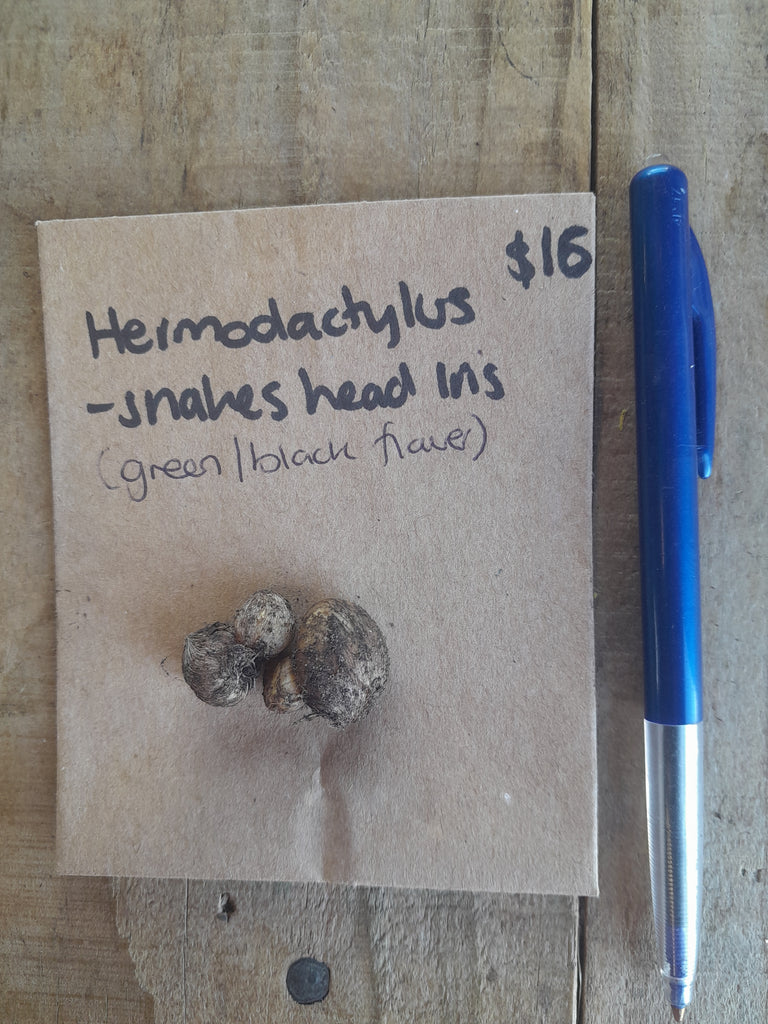 $16
Hermodactylus
-snakes head Iris
(green/black flower)